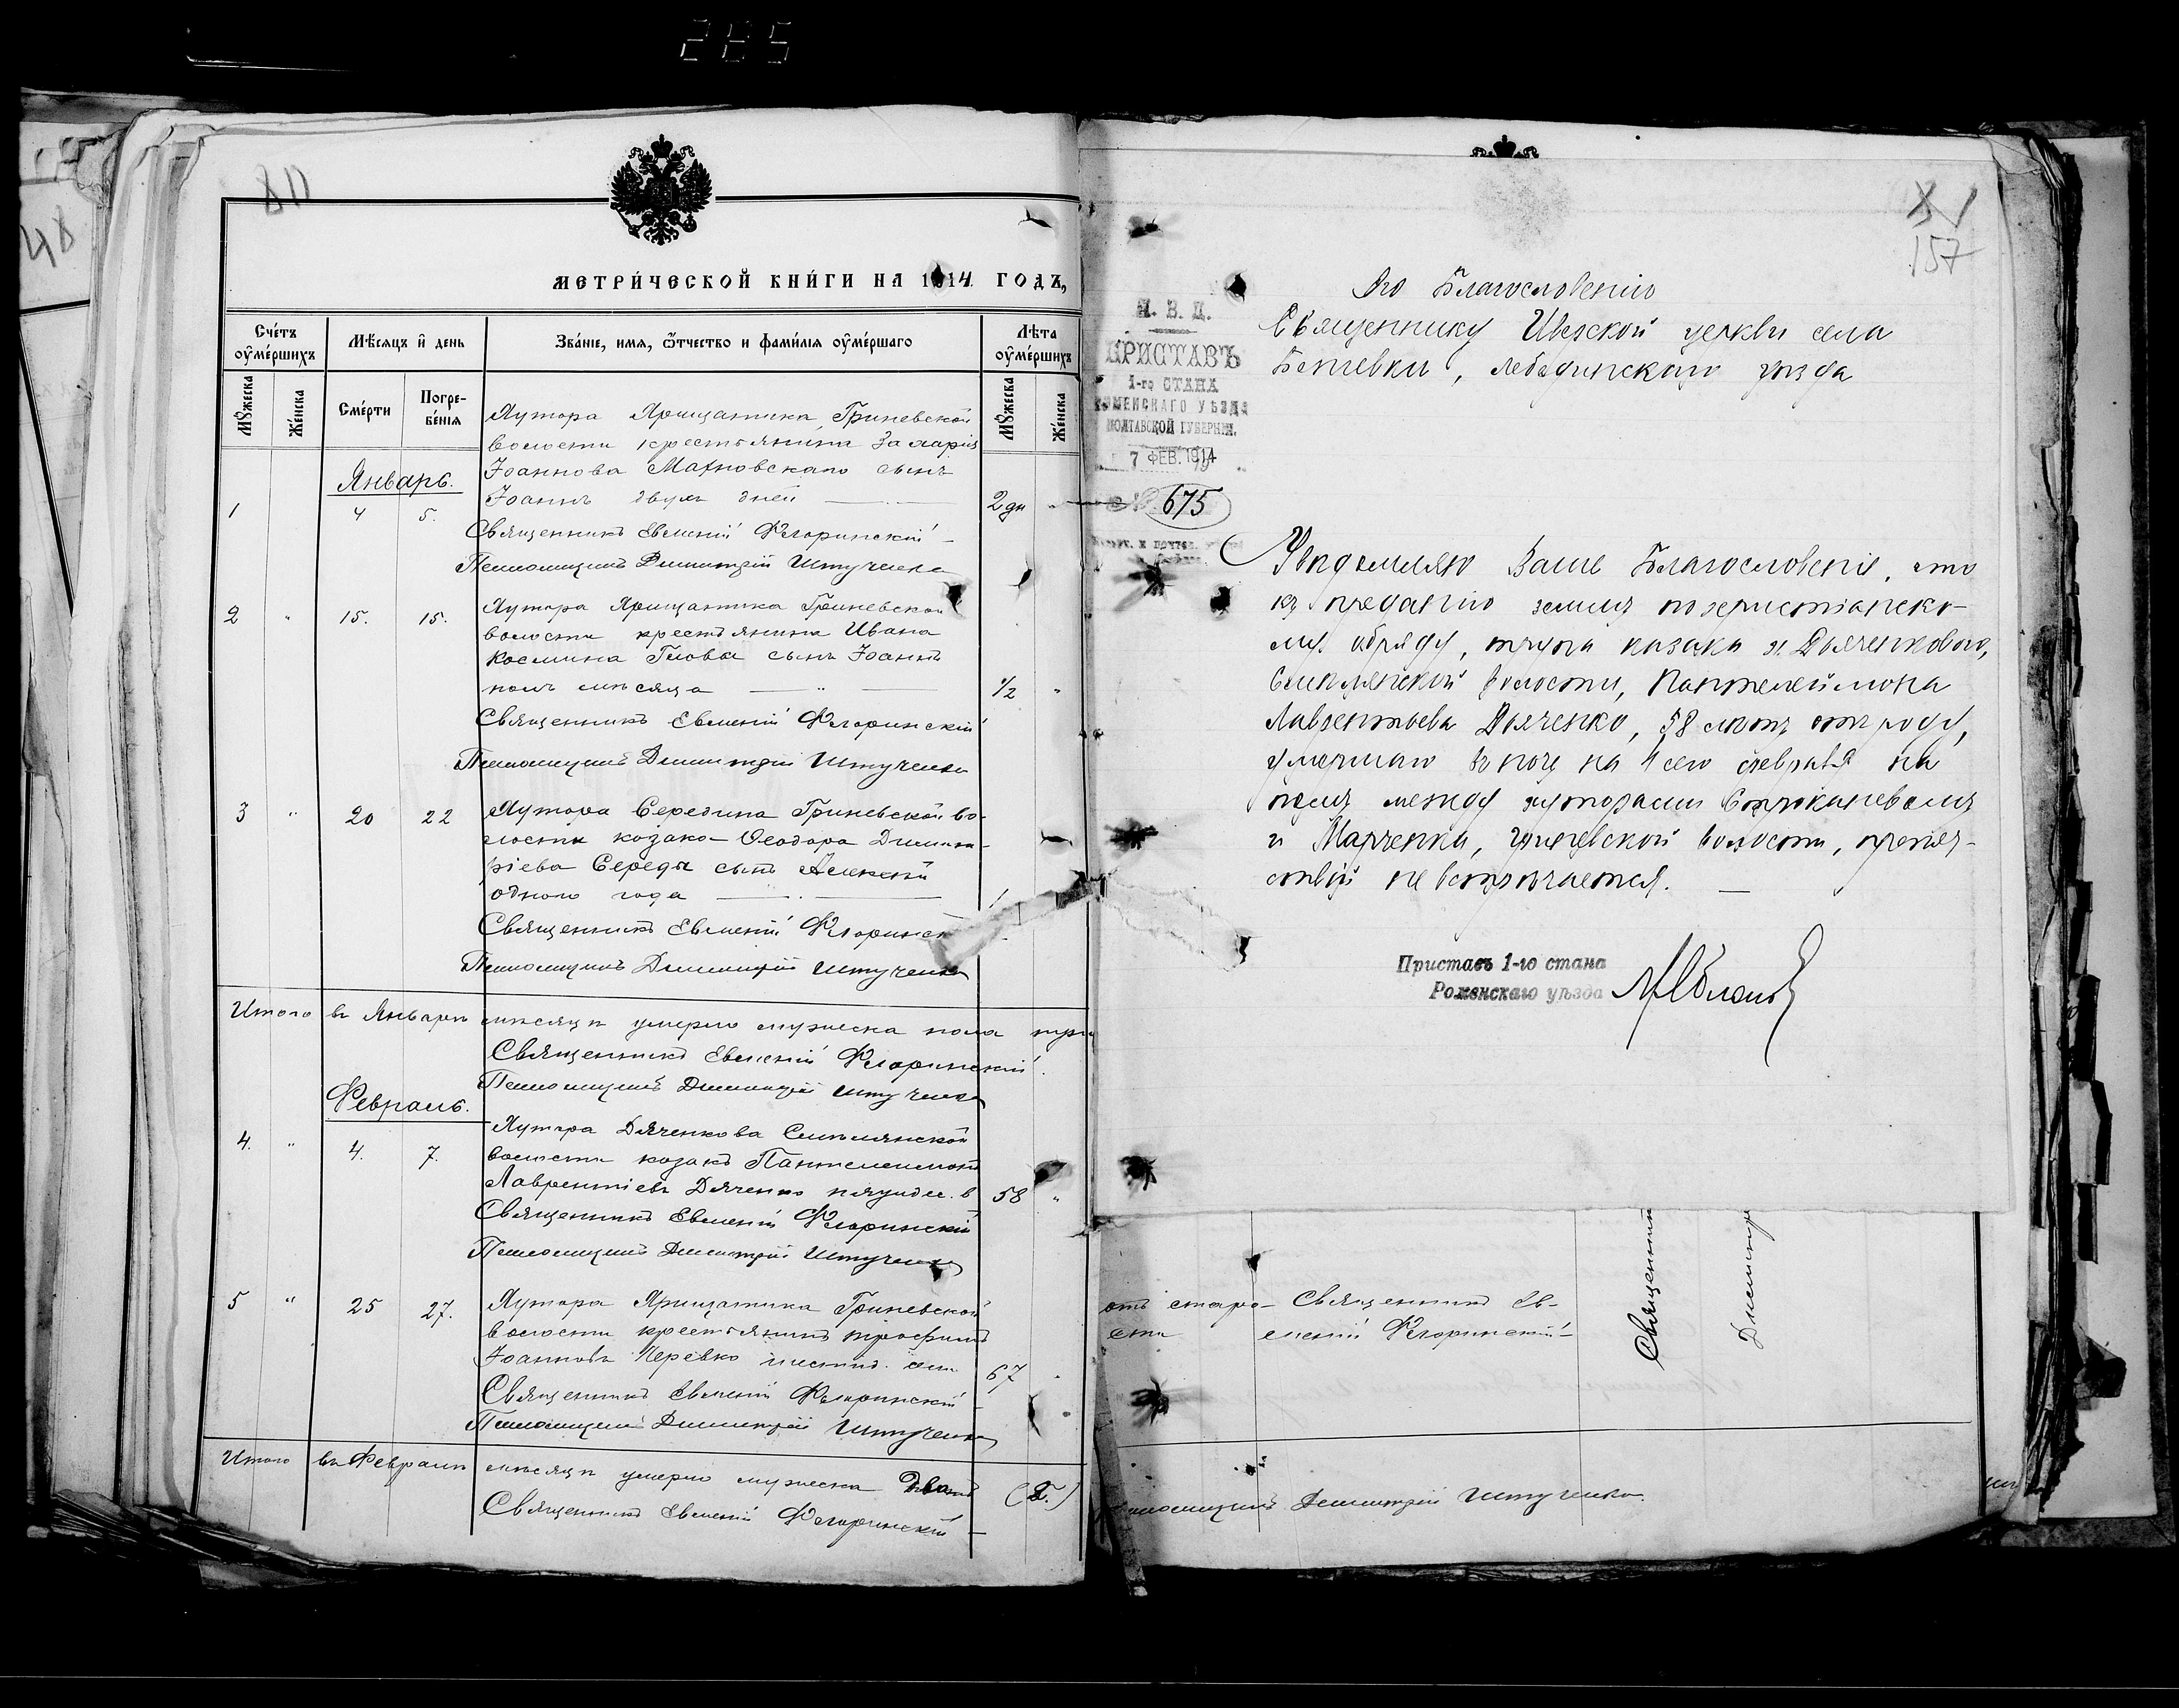 285
48
811
МЕТРИ́ЧЕСКОЙ КНИ́ГИ НА 1914 ГОДЪ,
Сче́тъ ᲂумершихъ
Мѣсяцъ и день
Зва́ніе, имя, ѿтчество и фами́лія ᲂуме́ршаго
Лѣта ᲂуме́ршихъ
Мꙋжеска
Же́нска
Сме́рти
Погребе́нія
Мꙋжеска
Же́нска
Январь.
Хутора Хрищатика, Гриневской
волости крестьянина Захарія
Іоаннова Махновскаго сынъ
1 4 5. Іоаннъ двухъ дней 2 дн "
Священникъ Евменій Флоринскій
Псаломщикъ Димитрій Штученко
2 " 15. 15. Хутора Хрищатика Гриневской
волости крестьянина Ивана
Космина сынъ Іоаннъ
полъ мѣсяца 1/2 "
Священникъ Евменій Флоринскій
Псаломщикъ Димитрій Штученко
3 " 20 22 Хутора Середина Гриневской во-
лости козака Ѳеодора Димит-
ріева Середы сынъ Алексѣй
одного года 1
Священникъ Евменій Флоринск
Псаломщикъ Димитрій Штученко
Итого въ Январѣ мѣсяцѣ умерло мужеска пола три
Священникъ Евменій Флоринскій.
Псаломщикъ Димитрій Штученко
Февраль.
4. " 4. 7. Хутора Дяченкова Смѣлянской
волости козакъ Пантелеимонъ
Лаврентіевъ Дяченко пятидес. в 58 "
Священникъ Евменій Флоринскій
Псаломщикъ Димитрій Штученко
5 " 25 27. Хутора Хрищатика Гриневской
волости крестьянинъ Трофимъ
Іоанновъ Перевко шестид. сем 67
Священникъ Евменій Флоринскій
Псаломщикъ Димитрій Штученко
Итого въ Февралѣ мѣсяцѣ умерло мужеска два (2.)
Священникъ Евменій Флоринскій
157
М. В. Д.
ПРИСТАВЪ
1-го СТАНА
РОМЕНСКАГО УѢЗДА
ПОЛТАВСКОЙ ГУБЕРНІИ.
7 ФЕВ. 1914
№ 675
Его Благословенію
Священнику Иверской церкви села
Бешевки, Лебединскаго уѣзда
Увѣдомляю Ваше Благословеніе, что
къ преданію землѣ по христіанско-
му обряду, трупа казака х. Дяченкового,
Смѣлянской волости, Пантелеймона
Лаврентьева Дяченко, 58 лѣтъ отъ роду,
умершаго въ ночь на 4 сего февраля на
полѣ между хуторами
и Марченки, Гриневской волости, препят-
ствій не встрѣчается.
Приставъ 1-го стана
Роменскаго уѣзда
отъ старо-
сти
Священникъ Ев-
меній Флоринскій
Священник
Димитр
Псаломщикъ Димитрій Штученко.